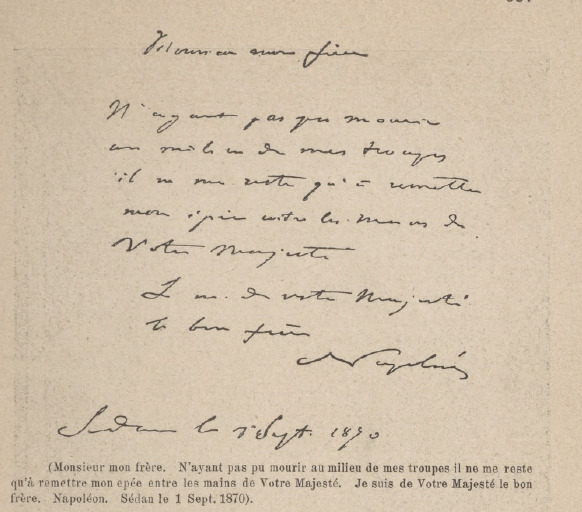 Monsieur mon frère
N'ayant pas pu mourir
au milieu de mes troupes
il ne me reste qu'à remettre
mon épée entre les mains de
Votre Majesté
Je suis de votre Majesté
le bon frère
Napoléon
Sedan le 1 Sept. 1870
(Monsieur mon frère. N'ayant pas pu mourir au milieu de mes troupes il ne me reste
qu'à remettre mon epée entre les mains de Votre Majesté. Je suis de Votre Majesté le bon
frère. Napoléon. Sédan le 1 Sept. 1870).